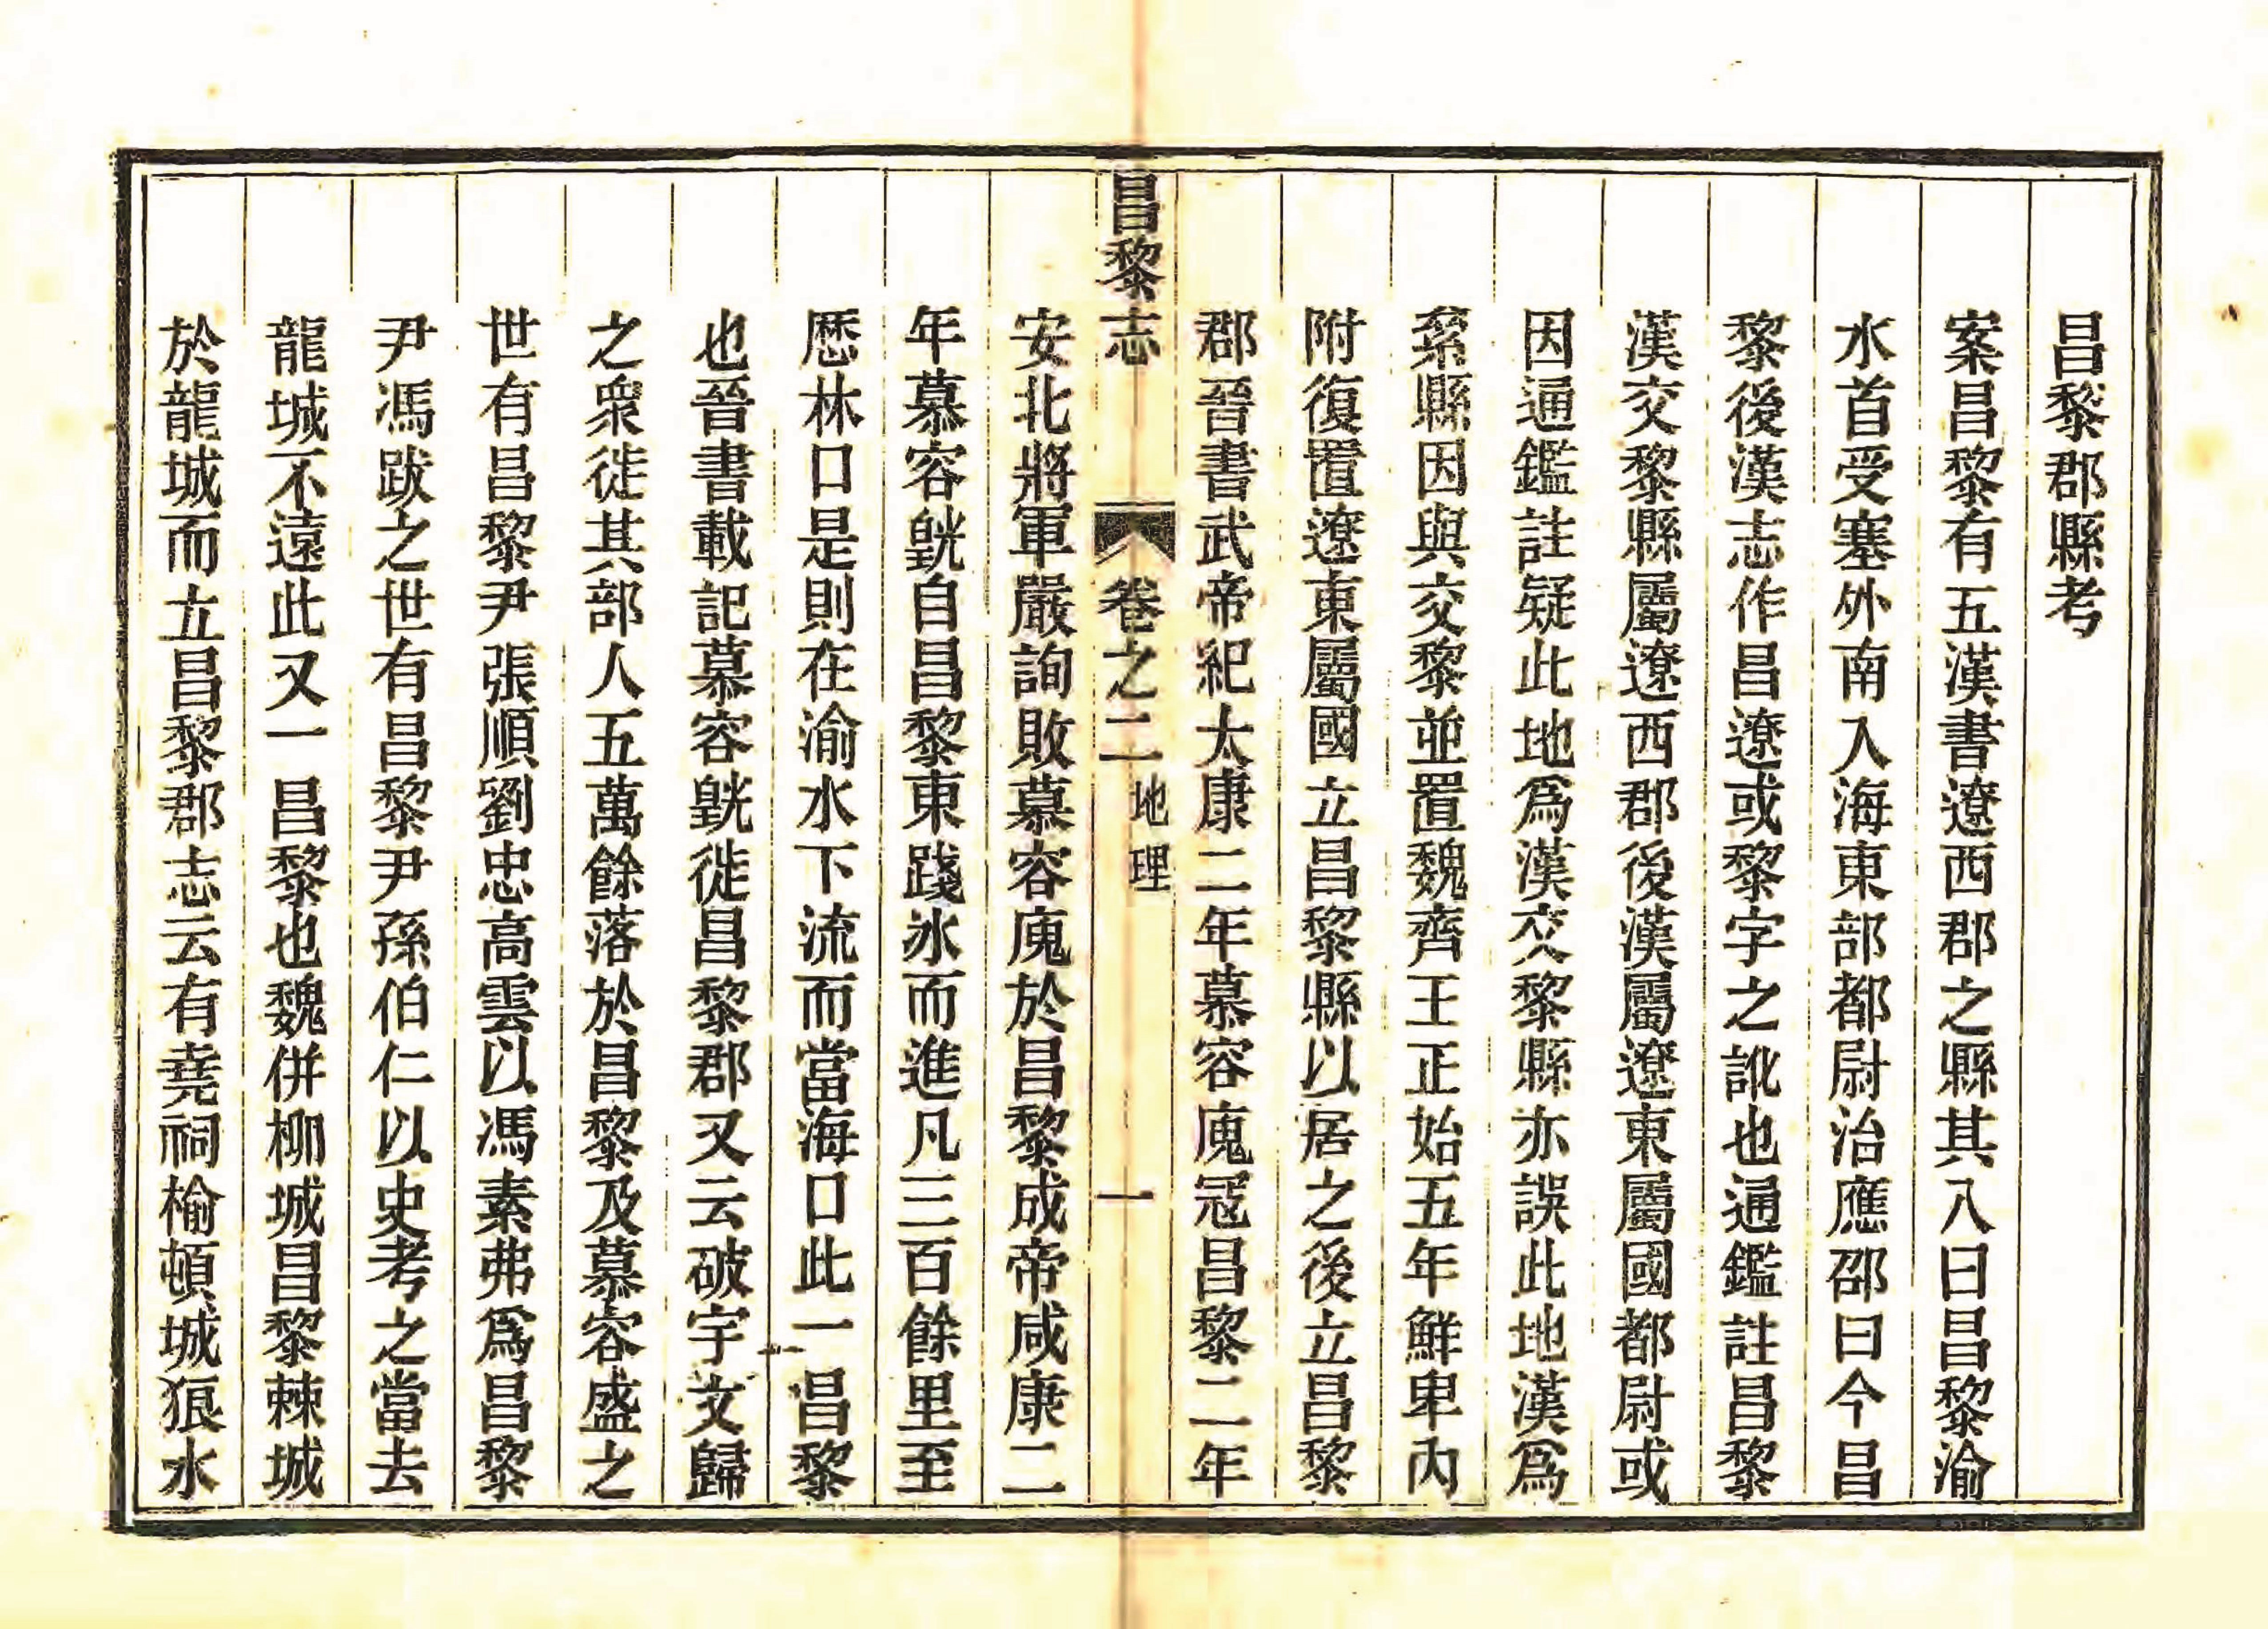 昌黎郡縣考
案昌黎有五漢書遼西郡之縣其八曰昌黎渝
水首受塞外南入海東部都尉治應邵曰今昌
黎後漢志作昌遼或黎字之訛也通鑑註昌黎
漢交黎縣屬遼西郡後漢屬遼東屬國都尉或
因通鑑註疑此地爲漢交黎縣亦誤此地漢爲
絫縣因與交黎並置魏齊王正始五年鮮卑內
附復置遼東屬國立昌黎縣以居之後立昌黎
郡晉書武帝紀太康二年慕容廆冦昌黎二年
昌黎志 卷之二 地理 一
安北將軍嚴詢敗慕容廆於昌黎成帝咸康二
年慕容皝自昌黎東踐氷而進凡三百餘里至
歷林口是則在渝水下流而當海口此一昌黎
也晉書載記慕容皝徙昌黎郡又云破宇文歸
之衆徙其部人五萬餘落於昌黎及慕容盛之
世有昌黎尹張順劉忠高雲以馮素弗爲昌黎
尹馮跋之世有昌黎尹孫伯仁以史考之當去
龍城不遠此又一昌黎也魏併柳城昌黎棘城
於龍城而立昌黎郡志云有堯祠榆頓城狼水